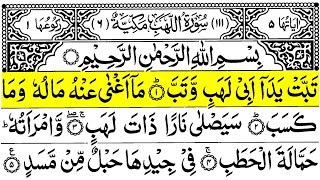 اٰیاتها ۵ (۱۱۱) سُوْرَةُ اللَّهَبِ مَكِّيَّةٌ (۶) رکوعها ۱
بِسْمِ اللهِ الرَّحْمٰنِ الرَّحِيْمِ
تَبَّتْ يَدَاۤ اَبِيْ لَهَبٍ وَّتَبَّ ۝۱ مَاۤ اَغْنٰى عَنْهُ مَالُهٗ وَمَا
كَسَبَ ۝۲ سَيَصْلٰى نَارًا ذَاتَ لَهَبٍ ۝۳ وَّامْرَاَتُهٗ ؕ
حَمَّالَةَ الْحَطَبِ ۝۴ فِيْ جِيْدِهَا حَبْلٌ مِّنْ مَّسَدٍ ۝۵